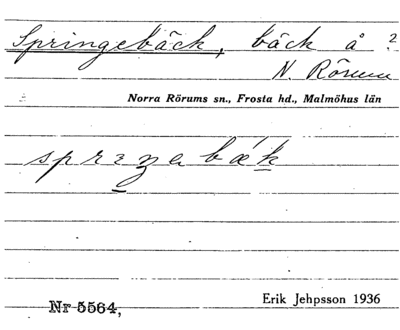 Springebäck, bäck å ?
N. Rörum
Norra Rörums sn., Frosta hd., Malmöhus län
Erik Jehpsson 1936
Nr 5564,